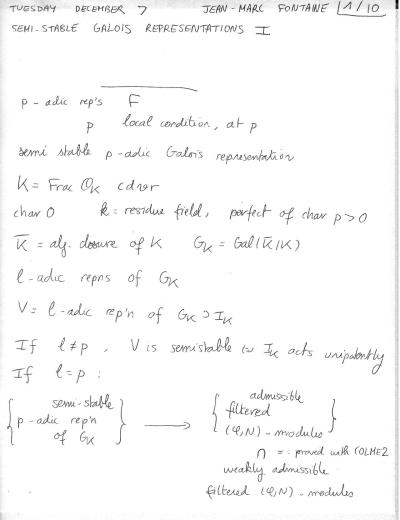 TUESDAY DECEMBER 7 JEAN-MARC FONTAINE 1/10
SEMI-STABLE GALOIS REPRESENTATIONS I
p-adic rep's F
p local condition, at p
semi stable p-adic Galois representation
K = Frac O_K cdvr
char 0 k = residue field, perfect of char p > 0
K̄ = alg. closure of K G_K = Gal(K̄/K)
ℓ-adic repns of G_K
V = ℓ-adic rep'n of G_K ⊃ I_K
If ℓ ≠ p, V is semistable ⇔ I_K acts unipotently
If ℓ = p :
{ semi-stable p-adic rep'n of G_K } → { admissible filtered (φ,N)-modules }
∩ = : proved with COLMEZ
weakly admissible
filtered (φ,N)-modules